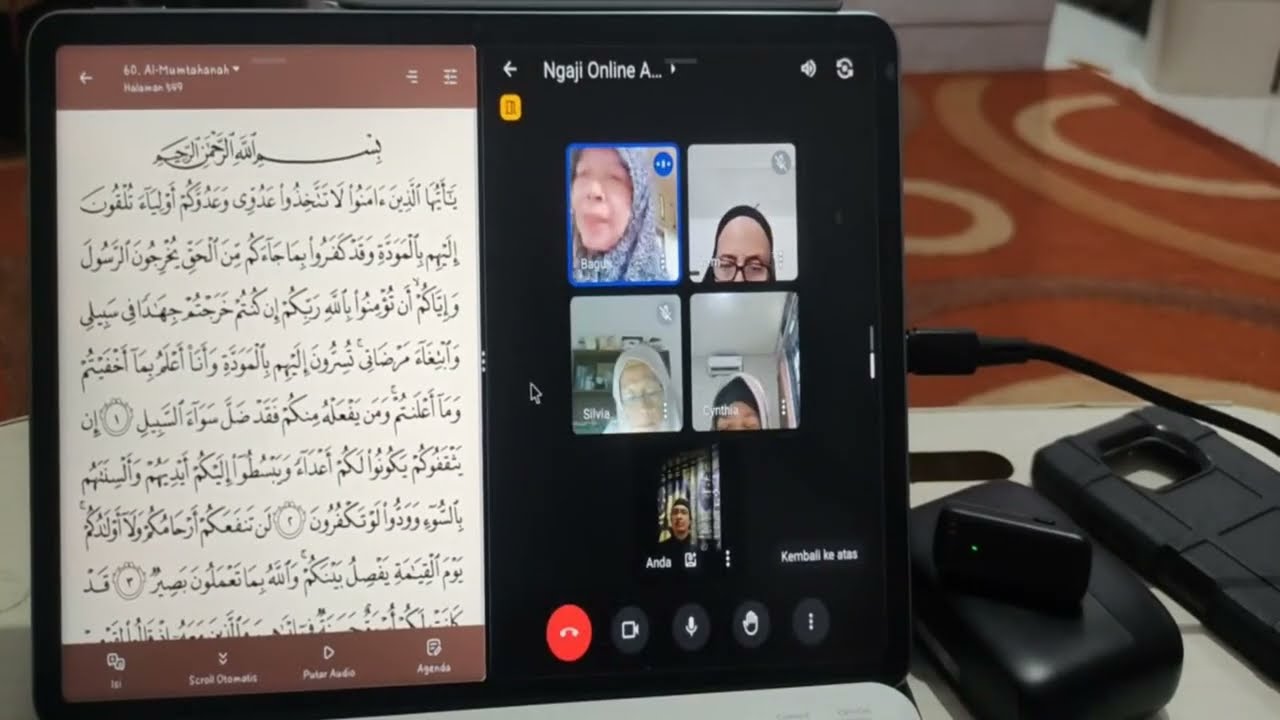 60. Al-Mumtahanah
Halaman 549
بِسْمِ ٱللَّهِ ٱلرَّحْمَٰنِ ٱلرَّحِيمِ
يَٰٓأَيُّهَا ٱلَّذِينَ ءَامَنُوا۟ لَا تَتَّخِذُوا۟ عَدُوِّى وَعَدُوَّكُمْ أَوْلِيَآءَ تُلْقُونَ
إِلَيْهِم بِٱلْمَوَدَّةِ وَقَدْ كَفَرُوا۟ بِمَا جَآءَكُم مِّنَ ٱلْحَقِّ يُخْرِجُونَ ٱلرَّسُولَ
وَإِيَّاكُمْ ۙ أَن تُؤْمِنُوا۟ بِٱللَّهِ رَبِّكُمْ إِن كُنتُمْ خَرَجْتُمْ جِهَٰدًا فِى سَبِيلِى
وَٱبْتِغَآءَ مَرْضَاتِى ۚ تُسِرُّونَ إِلَيْهِم بِٱلْمَوَدَّةِ وَأَنَا۠ أَعْلَمُ بِمَآ أَخْفَيْتُمْ
وَمَآ أَعْلَنتُمْ ۚ وَمَن يَفْعَلْهُ مِنكُمْ فَقَدْ ضَلَّ سَوَآءَ ٱلسَّبِيلِ ١ إِن
يَثْقَفُوكُمْ يَكُونُوا۟ لَكُمْ أَعْدَآءً وَيَبْسُطُوٓا۟ إِلَيْكُمْ أَيْدِيَهُمْ وَأَلْسِنَتَهُم
بِٱلسُّوٓءِ وَوَدُّوا۟ لَوْ تَكْفُرُونَ ٢ لَن تَنفَعَكُمْ أَرْحَامُكُمْ وَلَآ أَوْلَٰدُكُمْ ۚ
يَوْمَ ٱلْقِيَٰمَةِ يَفْصِلُ بَيْنَكُمْ ۚ وَٱللَّهُ بِمَا تَعْمَلُونَ بَصِيرٌ ٣ قَدْ
Isi
Scroll Otomatis
Putar Audio
Agenda
Ngaji Online A...
Bagus
Silvia
Cynthia
Anda
Kembali ke atas